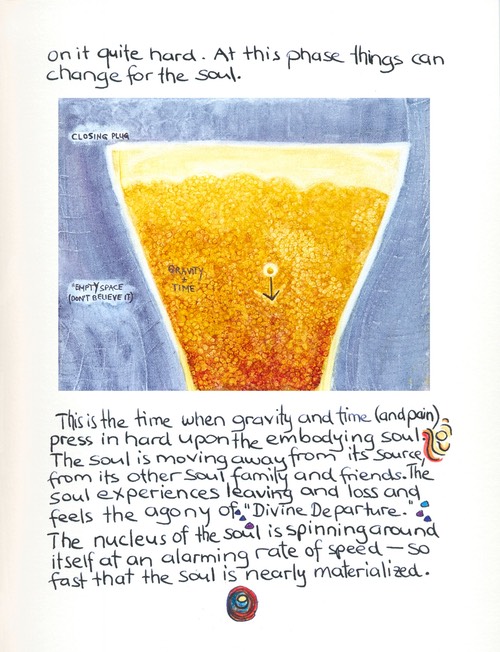 on it quite hard. At this phase things can
change for the soul.
CLOSING PLUG
GRAVITY
+
TIME
"EMPTY SPACE
(DON'T BELIEVE IT)
This is the time when gravity and time (and pain)
press in hard upon the embodying soul.
The soul is moving away from its source,
from its other soul family and friends. The
soul experiences leaving and loss and
feels the agony of "Divine Departure."
The nucleus of the soul is spinning around
itself at an alarming rate of speed — so
fast that the soul is nearly materialized.